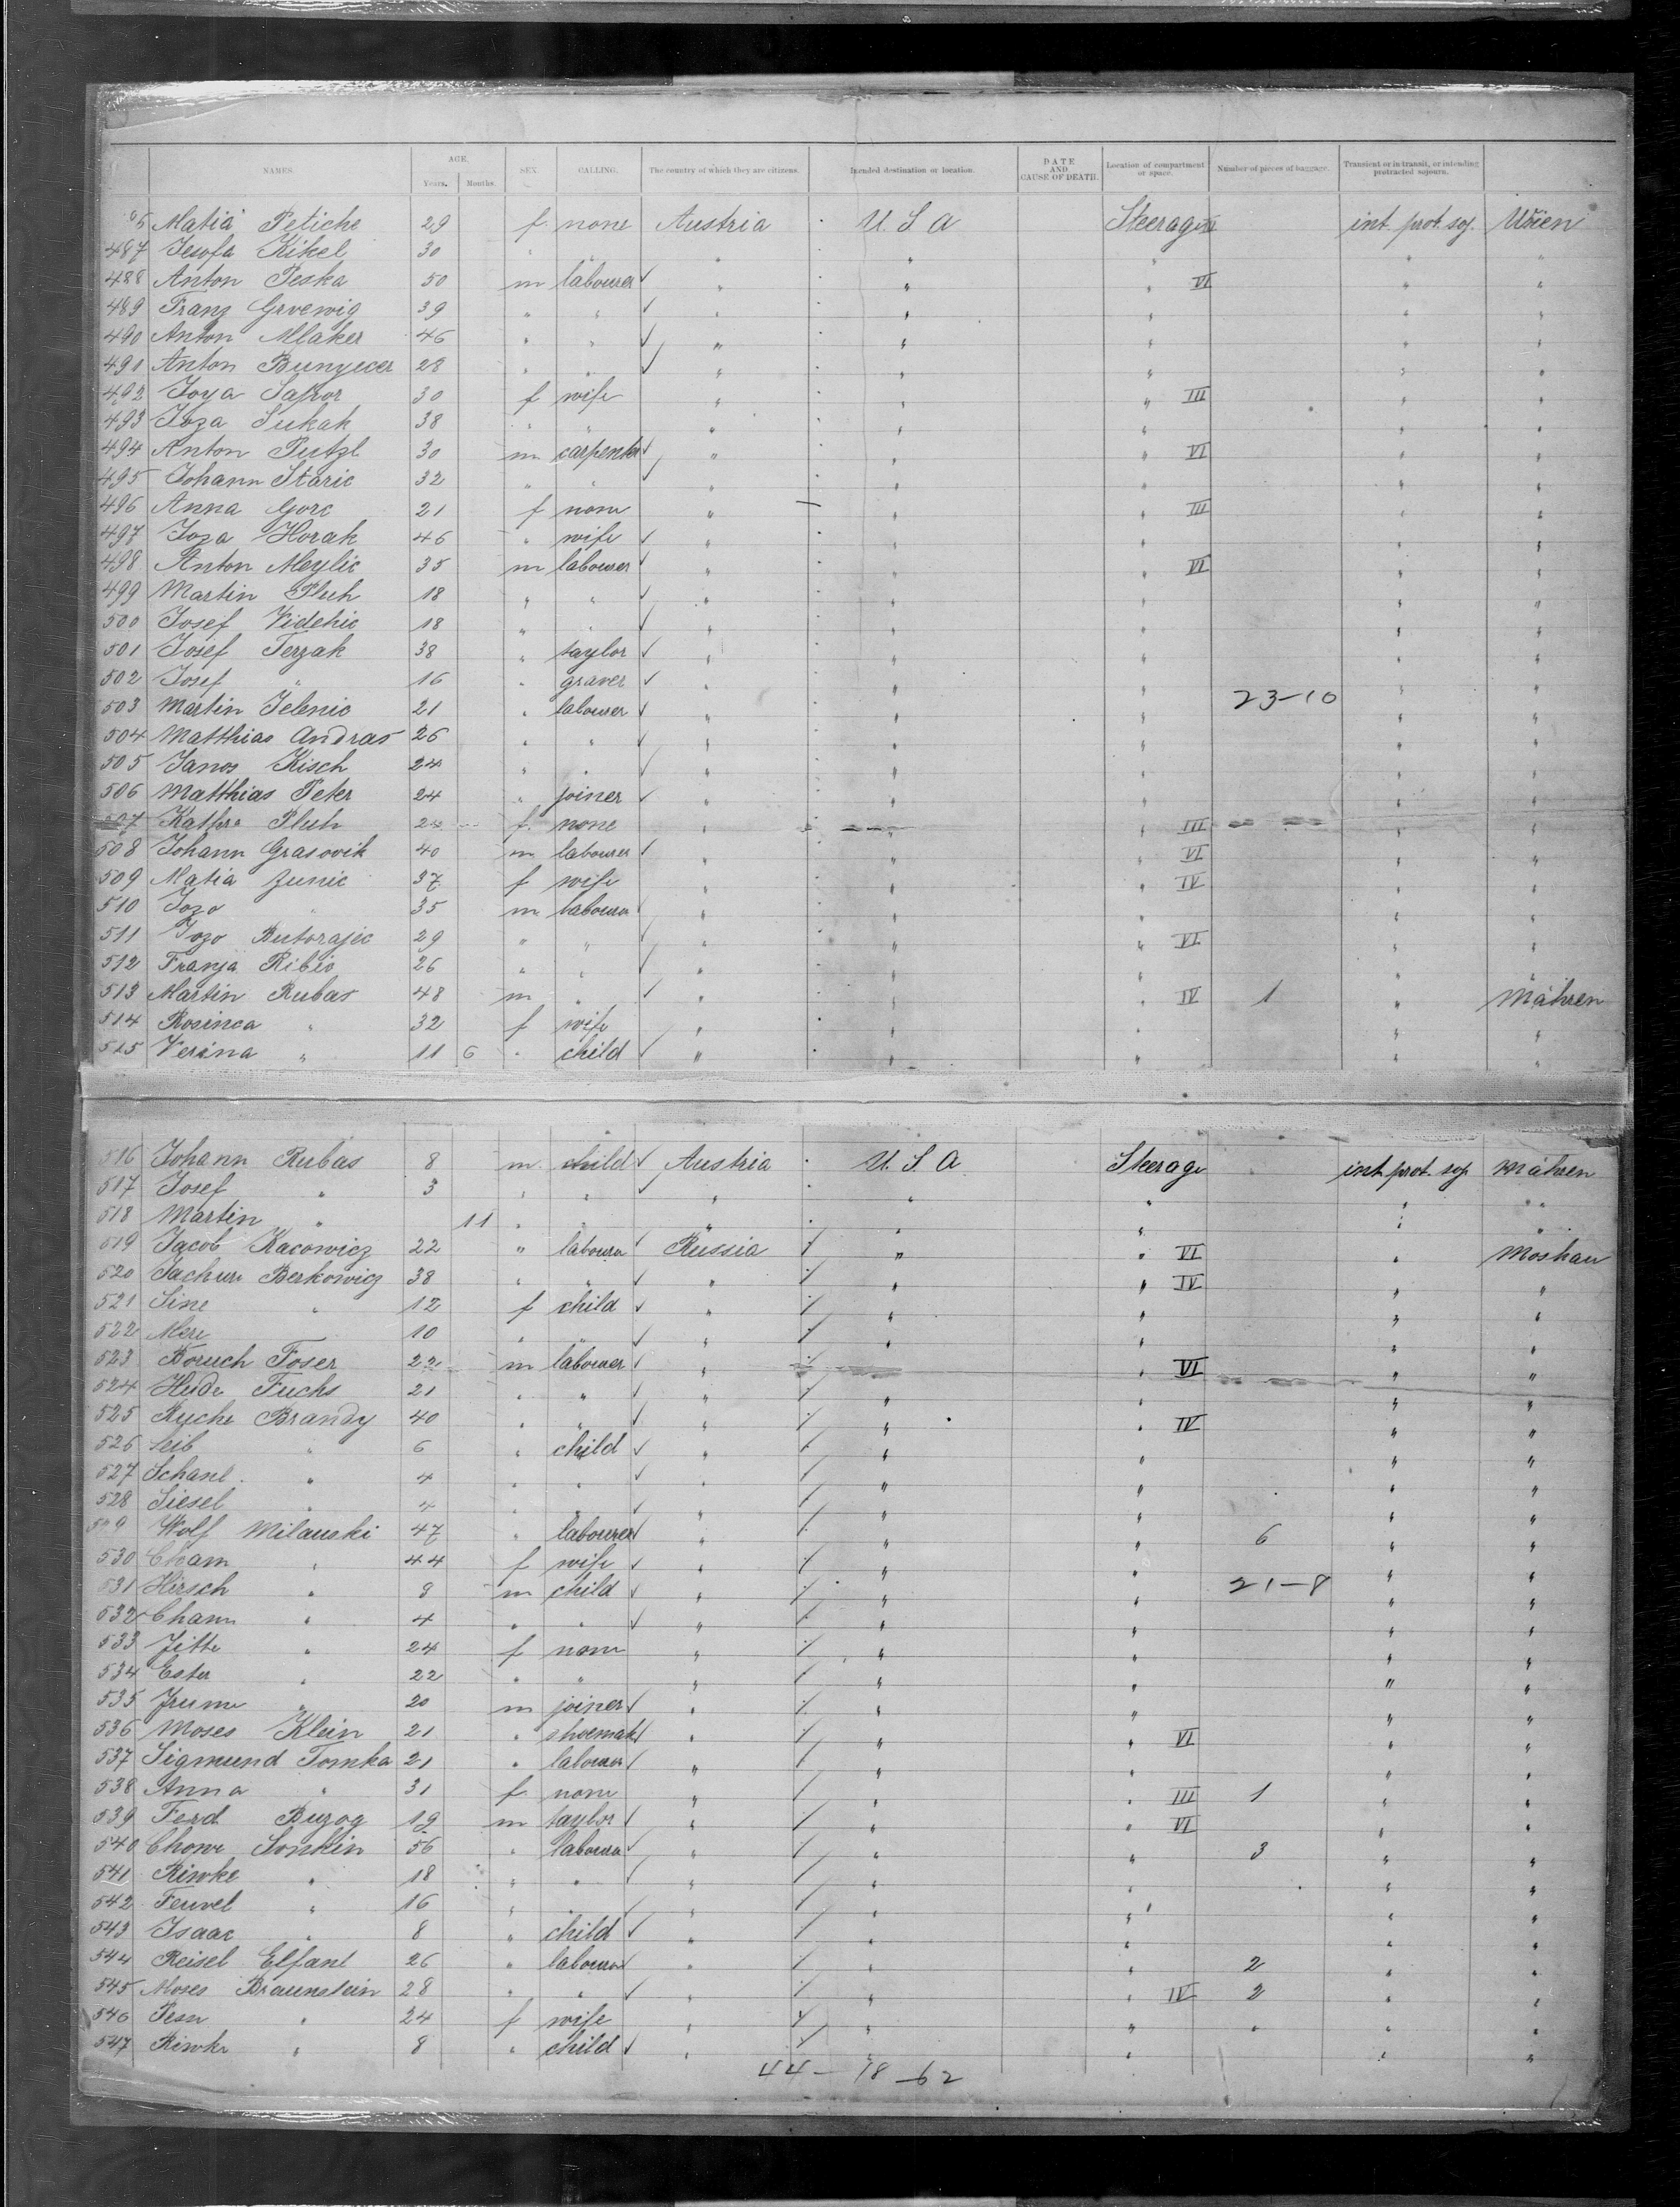 NAMES. AGE. Years. Months. SEX. CALLING. The country of which they are citizens. Intended destination or location. DATE AND CAUSE OF DEATH. Location of compartment or space. Number of pieces of baggage. Transient or in transit, or intending protracted sojourn.
Matia Petiche 29 f none Austria U. S. A Steerage int. prot. soj. Wien
487 Josefa Kikel 30 " " " " " " "
488 Anton Peska 50 m labourer " " " VI " "
489 Franz Grvewig 39 " " " " " " "
490 Anton Mlaker 46 " " " " " " "
491 Anton Bunyecer 28 " " " " " " "
492 Joya Safror 30 f wife " " " III " "
493 Joza Sukak 38 " " " " " " "
494 Anton Putzl 30 m carpenter " " " VI " "
495 Johann Staric 32 " " " " " " "
496 Anna Gorc 21 f none " " " III " "
497 Joza Horak 46 " wife " " " " "
498 Anton Meylic 35 m labourer " " " VI " "
499 Martin Pluh 18 " " " " " " "
500 Josef Videhic 18 " " " " " " "
501 Josef Terzak 38 " taylor " " " " "
502 Josef " 16 " graver " " " " "
503 Martin Jelenic 21 " labourer " " " 23-10 " "
504 Matthias Andras 26 " " " " " " "
505 Janos Kisch 24 " " " " " " "
506 Matthias Peter 24 " joiner " " " " "
507 Kathra Pluh f none " " " III " "
508 Johann Grasovik 40 m labourer " " " VI " "
509 Matia Zunic 37 f wife " " " IV " "
510 Jozo " 35 m labourer " " " " "
511 Jozo Butorajic 29 " " " " " VI " "
512 Franja Ribic 26 " " " " " " "
513 Martin Rubas 48 m " " " " IV 1 " Mähren
514 Rosinca " 32 f wife " " " " "
515 Verina " 11 6 " child " " " " "
516 Johann Rubas 8 m child Austria U. S. A Steerage int. prot. soj. Mähren
517 Josef " 3 " " " " " " "
518 Martin " 11 " " " " " " "
519 Jacob Kacowicz 22 " labourer Russia " " VI " Moskau
520 Berkowicz 38 " " " " " IV " "
521 Sine " 12 f child " " " " "
522 Mere " 10 " " " " " " "
523 Boruch Foser 22 m labourer " " " VI " "
524 Hude Fuchs 21 " " " " " " "
525 Ryche Brandy 40 " " " " " IV " "
526 Leib " 6 " child " " " " "
527 Schanl " 4 " " " " " " "
528 Liesel " 4 " " " " " " "
529 Wolf Milauski 47 " labourer " " " 6 " "
530 Cham " 44 f wife " " " " "
531 Hirsch " 8 m child " " " 21-8 " "
532 Chann " 4 " " " " " " "
533 Jitte " 24 f none " " " " "
534 Ester " 22 " " " " " " "
535 " 20 m joiner " " " " "
536 Moses Klein 21 " shoemak " " " VI " "
537 Sigmund Tomka 21 " labourer " " " " "
538 Anna " 31 f none " " " III 1 " "
539 Ferd Buzog 19 m taylor " " " VI " "
540 Chone Sonkin 56 " labourer " " " 3 " "
541 Riwke " 18 " " " " " " "
542 Feuvel " 16 " " " " " " "
543 Isaac " 8 " child " " " " "
544 Reisel Elfant 26 " labourer " " " 2 " "
545 Moses Braunstein 28 " " " " " IV 2 " "
546 Pesn " 24 f wife " " " " " "
547 Riwke " 8 " child " " " " "
44 - 18 - 62